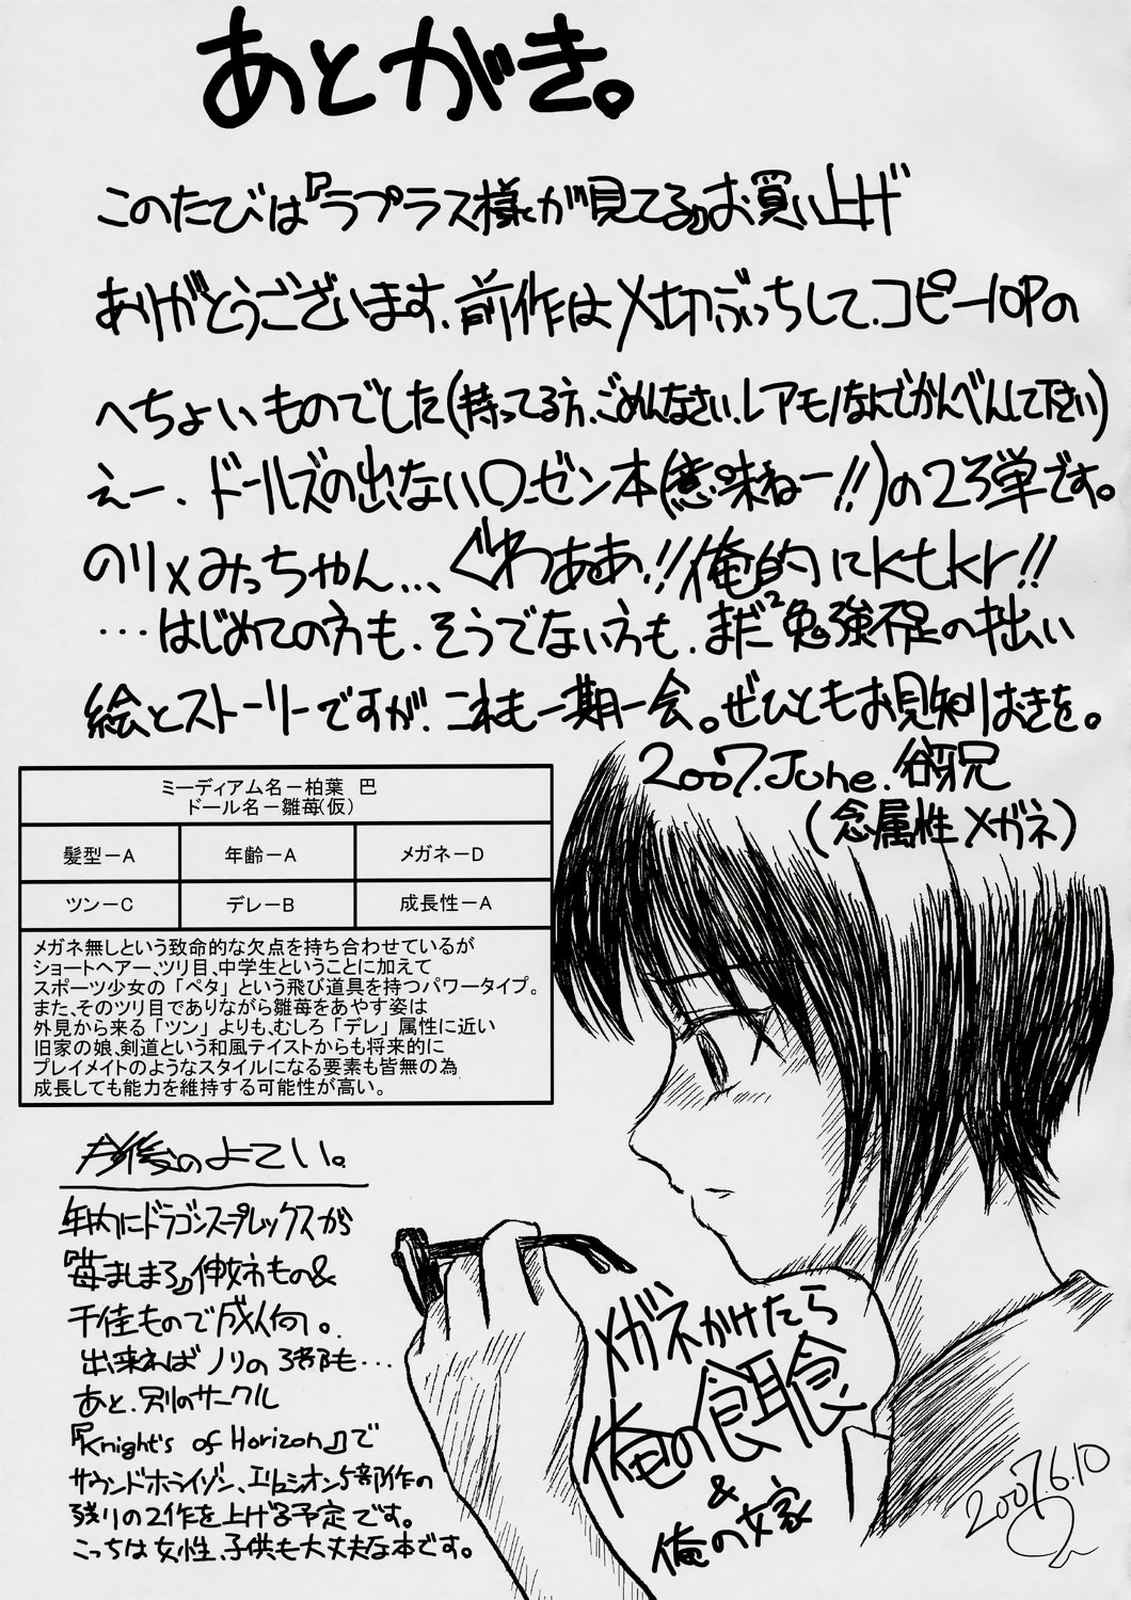 あとがき。
このたびは『ラプラス様が見てる』お買い上げ
ありがとうございます、前作は〆切ぶっちして、コピー10Pの
へちょいものでした(持ってる方、ごめんなさい、レアモノなんでかんべんして下さい)
えー、ドールズの出ないローゼン本(意味ねー!!)の2ろ弾です。
のり×みっちゃん…、ぐわぁあ!!俺的にktkr!!
…はじめての方も、そうでない方も、まだ²勉強不足の拙い
絵とストーリーですが、これも一期一会。ぜひともお見知りおきを。
2007.June.谺牙兄
(念属性メガネ)
ミーディアム名－柏葉 巴
ドール名－雛苺(仮)
髪型－A 年齢－A メガネ－D
ツン－C デレ－B 成長性－A
メガネ無しという致命的な欠点を持ち合わせているが
ショートヘアー、ツリ目、中学生ということに加えて
スポーツ少女の「ペタ」という飛び道具を持つパワータイプ。
また、そのツリ目でありながら雛苺をあやす姿は
外見から来る「ツン」よりも、むしろ「デレ」属性に近い
旧家の娘、剣道という和風テイストからも将来的に
プレイメイトのようなスタイルになる要素も皆無の為
成長しても能力を維持する可能性が高い。
今後のよてい。
年内にドラゴンスープレックスが
『苺ましまろ』伸姉もの&
千佳もので成人向。
出来ればノリの3部も…
あと、別のサークル
『Knight's of Horizon』で
サウンドホライゾン、エリュシオン5部作の
残りの2作を上げる予定です。
こっちは女性、子供も大丈夫な本です。
メガネかけたら
俺の餌食
&
俺の嫁
2007.6.10